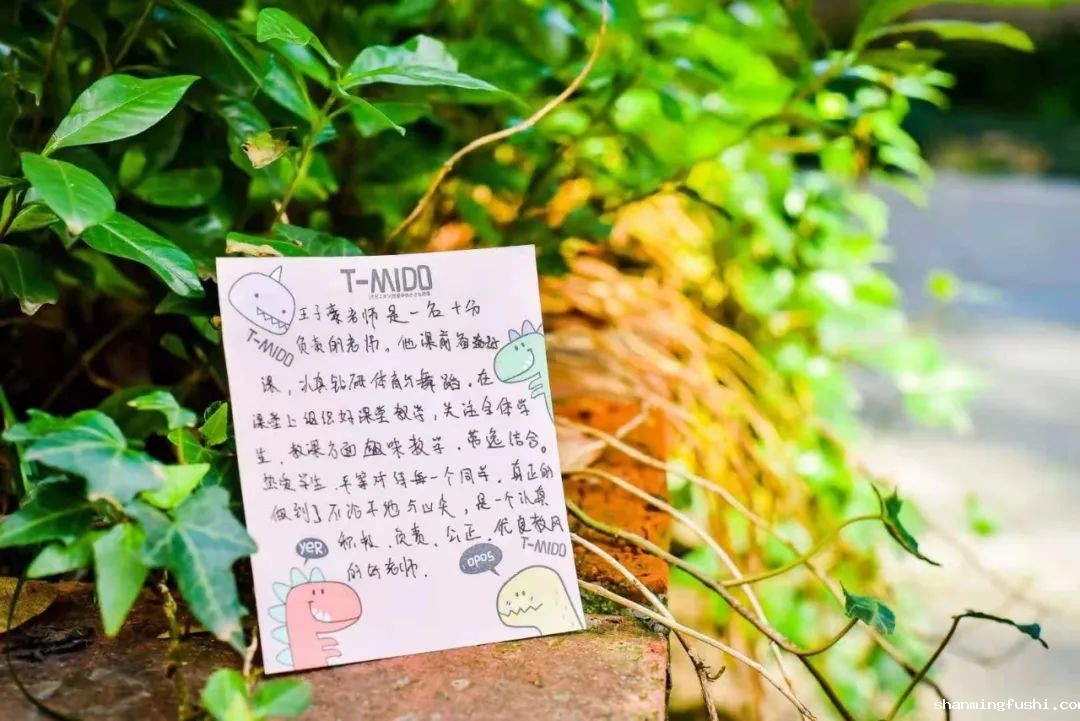 T-MIDO
王子豪老师是一名十分
负责的老师。他课前备好
T-MIDO
课,认真钻研体育与舞蹈.在
课堂上组织好课堂教学,关注全体学
生.教课方面趣味教学.劳逸结合。
热爱学生.平等对待每一个同学.真正的
做到了不
是一个认真
积极.负责.公正.优良教风
T-MIDO
的好老师.
YER
OPOS
shanmingfushi.com